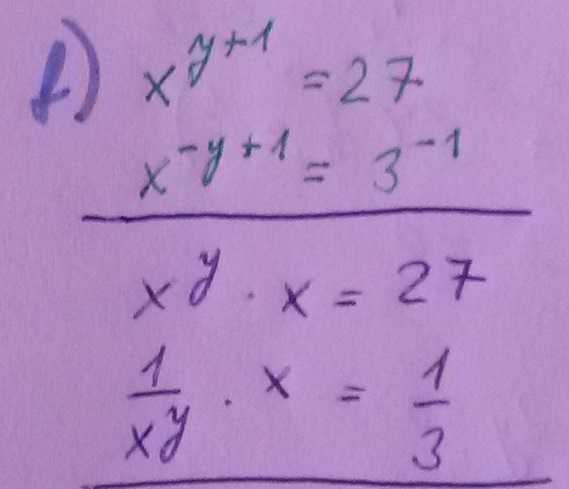 f) x^{y+1} = 27
x^{-y+1} = 3^{-1}
x^y · x = 27
\frac{1}{x^y} · x = \frac{1}{3}